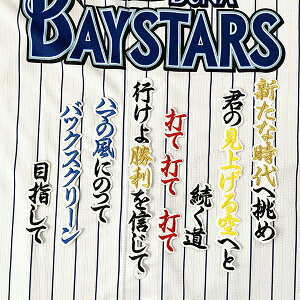 BAYSTARS
新たな時代へ挑め
君の見上げる空へと
続く道
打て 打て 打て
行けよ勝利を信じて
ハマの風にのって
バックスクリーン
目指して